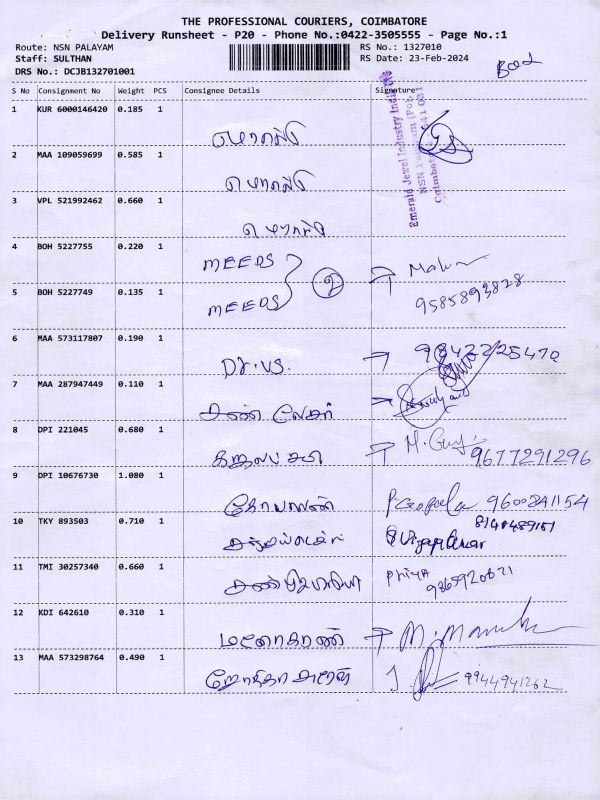 THE PROFESSIONAL COURIERS, COIMBATORE
Delivery Runsheet - P20 - Phone No.:0422-3505555 - Page No.:1
Route: NSN PALAYAM
RS No.: 1327010
Staff: SULTHAN
RS Date: 23-Feb-2024
DRS No.: DCJB132701001
S No Consignment No Weight PCS Consignee Details Signature
Emerald Jewel Industry India
1 KUR 6000146420 0.185 1
எமரால்டு
2 MAA 109059699 0.585 1
எமரால்டு
3 VPL 521992462 0.660 1
எமரால்டு
4 BOH 5227755 0.220 1
MEEDS
2
9585893828
5 BOH 5227749 0.135 1
MEEDS
6 MAA 573117807 0.190 1
Dr. VS.
9842225470
7 MAA 287947449 0.110 1
8 DPI 221045 0.680 1
9677291296
9 DPI 10676730 1.080 1
கோபாலன்
9600841154
10 TKY 893503 0.710 1
11 TMI 30257340 0.660 1
Priya
12 KDI 642610 0.310 1
மனோகரன்
13 MAA 573298764 0.490 1
9944941262